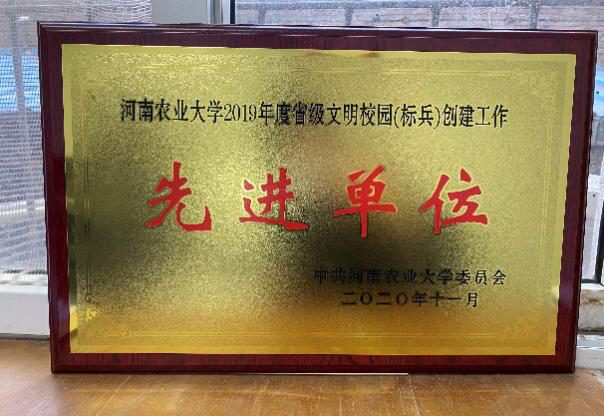 河南农业大学2019年度省级文明校园(标兵)创建工作
先进单位
中共河南农业大学委员会
二〇二〇年十一月